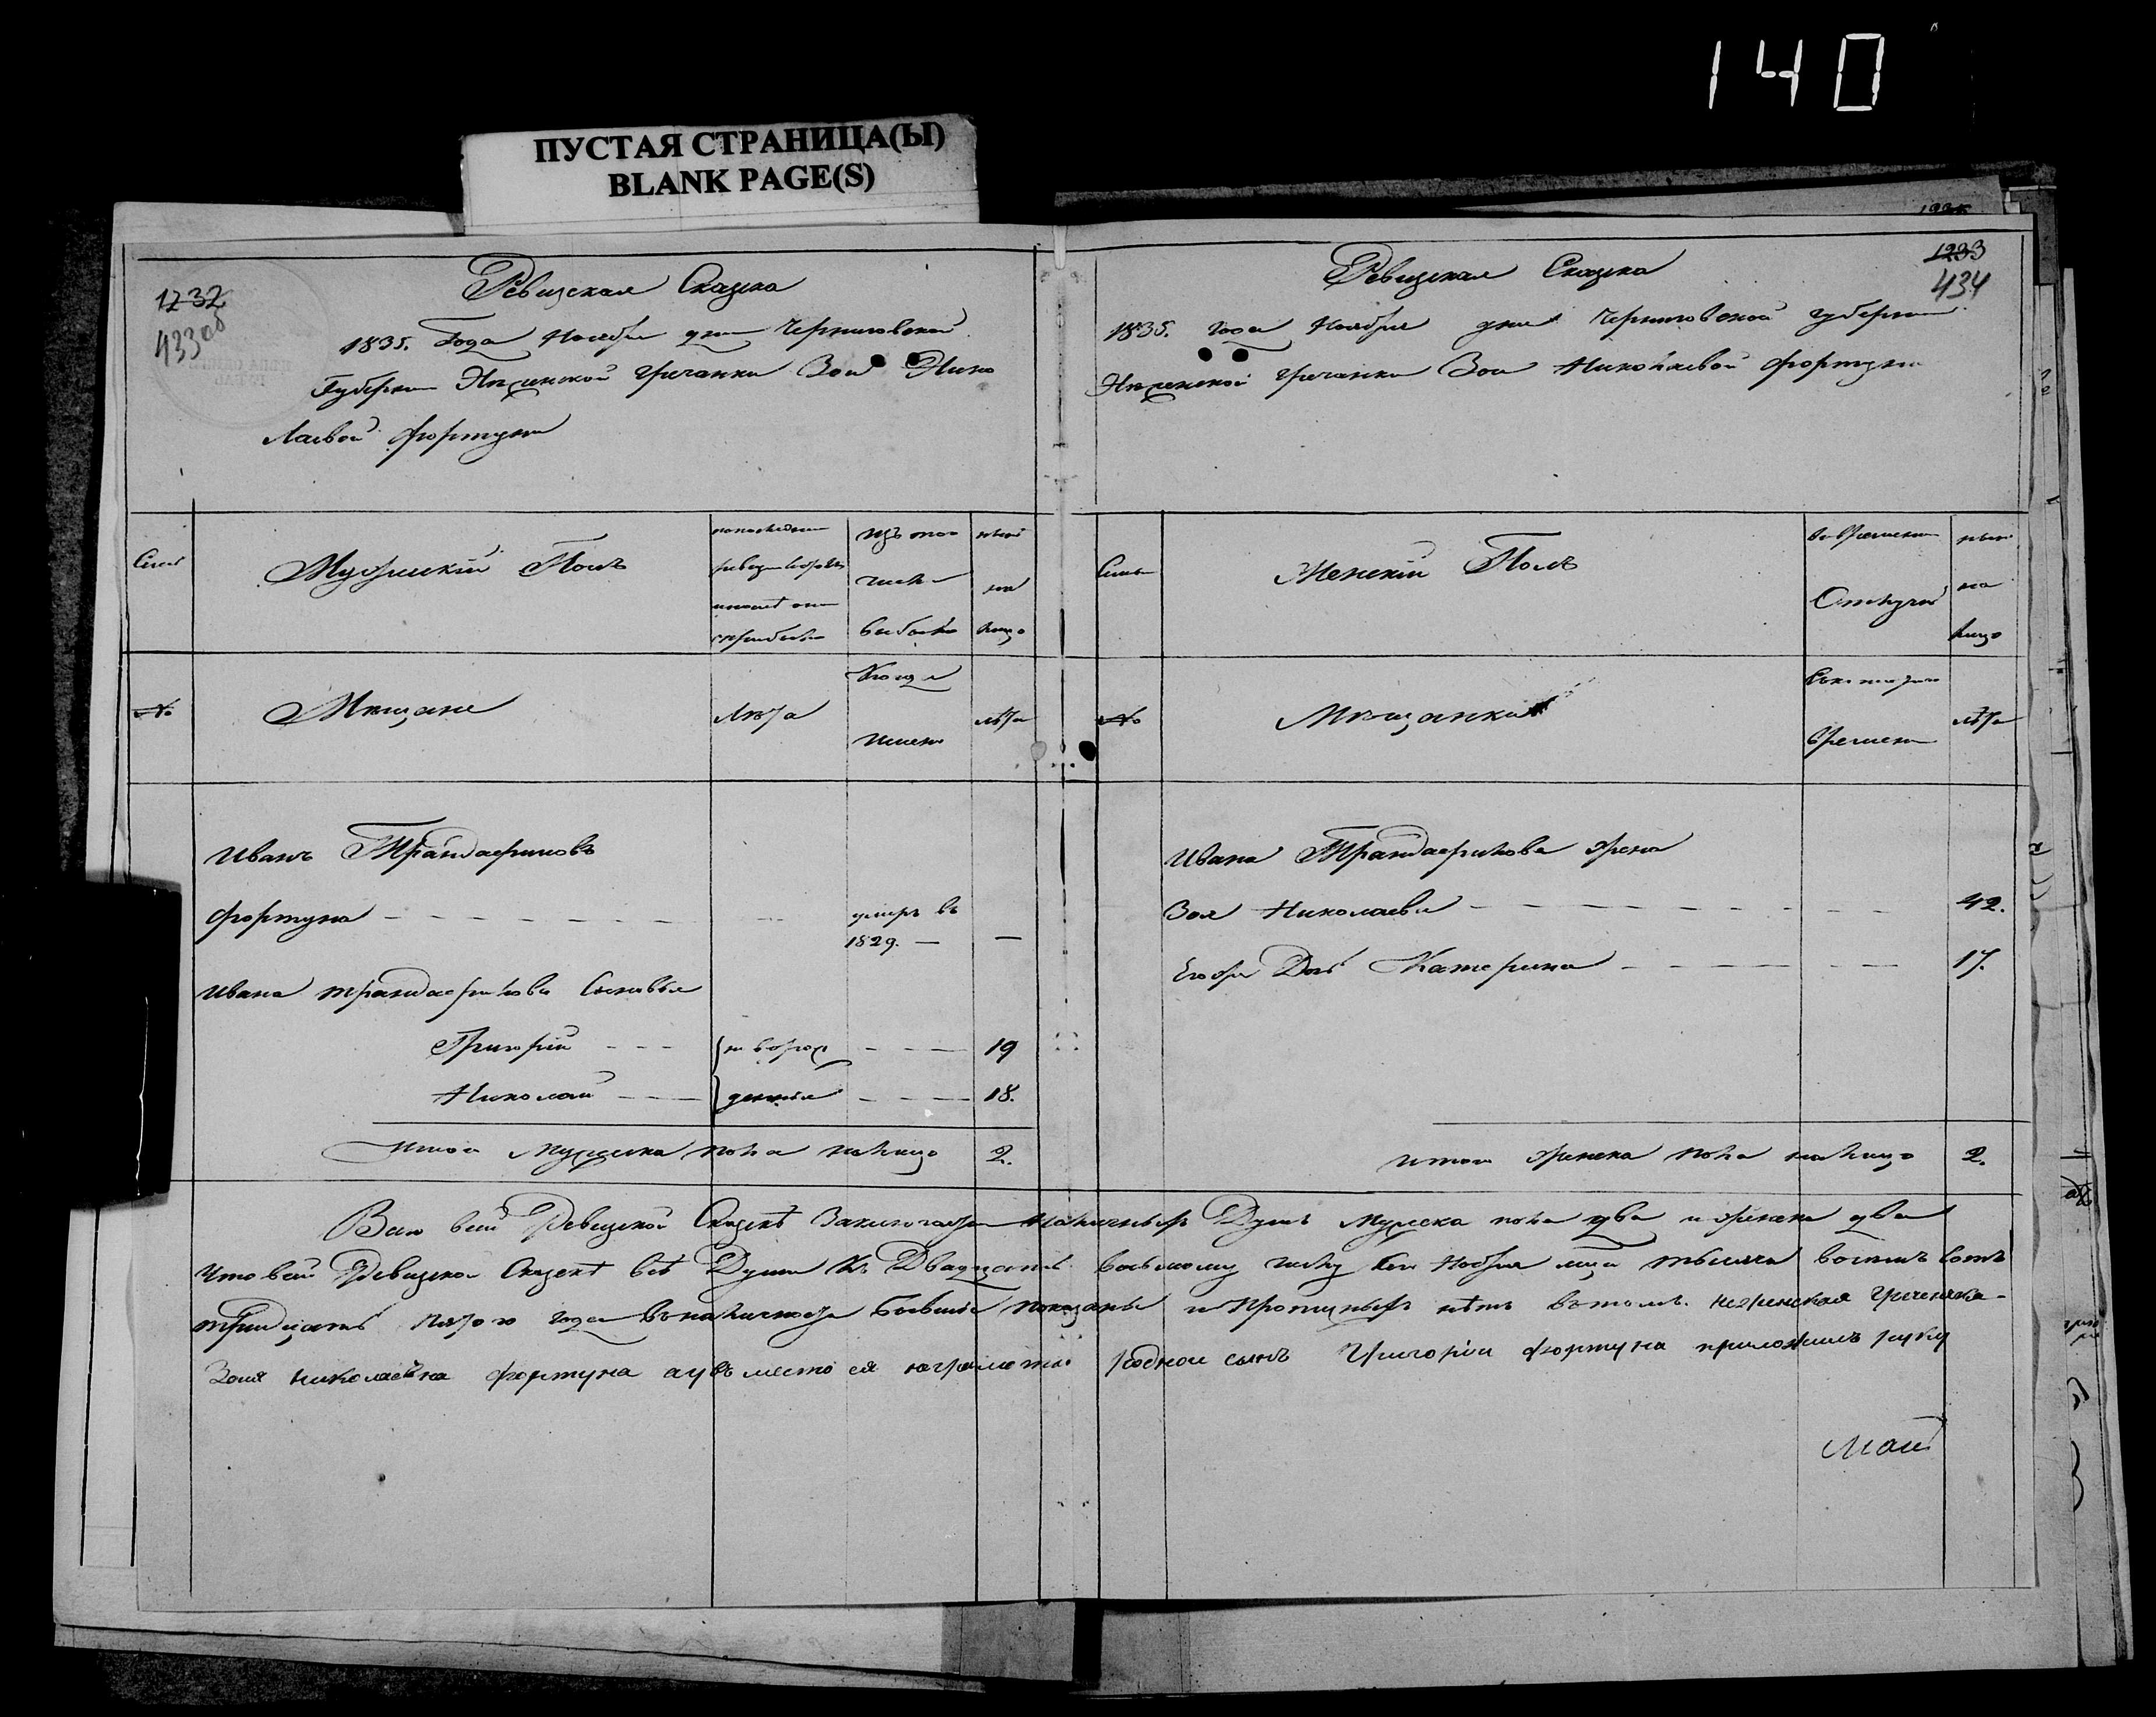 140
ПУСТАЯ СТРАНИЦА(Ы)
BLANK PAGE(S)
1232
433 об
Ревизская Сказка
1835. Года Ноября дня Черниговской
Губернии Нѣжинской гречанки Зои Нико
лаевой фортуни
Семьи
Мужескій Полъ
по последней
ревизіи
изъ того
числа
выбыло
ныне
на
лицо
№
Мѣщане
Лѣта
Когда
именно
лѣта
Иванъ Трандафиловъ
фортуна
умеръ въ
1829. —
—
Ивана трандафилова Сыновья
Григорій
новорож
19
Николай
денныя
18.
Итого Мужеска пола налицо 2.
1233
434
Ревизская Сказка
1835. года Ноября дня Черниговской губернии
Нѣжинской гречанки Зои Николаевой фортуни
Семьи
Женскій Полъ
во временной
Отлучке
ныне
на
лицо
№
Мѣщанки
Съ котораго
времени
лѣта
Ивана Трандафилова жена
Зоя Николаева 42.
Его же Дочь Катерина 17.
итого женска пола налицо 2.
Всего в сей Ревизской Сказкѣ Заключается Наличныхъ Душъ Мужеска пола два и женска два
Что в сей Ревизской Сказкѣ всѣ Души Къ Двадцать восьмому числу Ноября тысяча восемь сотъ
тридцать пятого года въ наличности бывшіе показаны и Пропущныхъ нѣтъ въ томъ. нежинская гречанка
Зоия николаевна фортуна а въместо ея неграмотной родной сынъ Григорій фортуна приложилъ руку